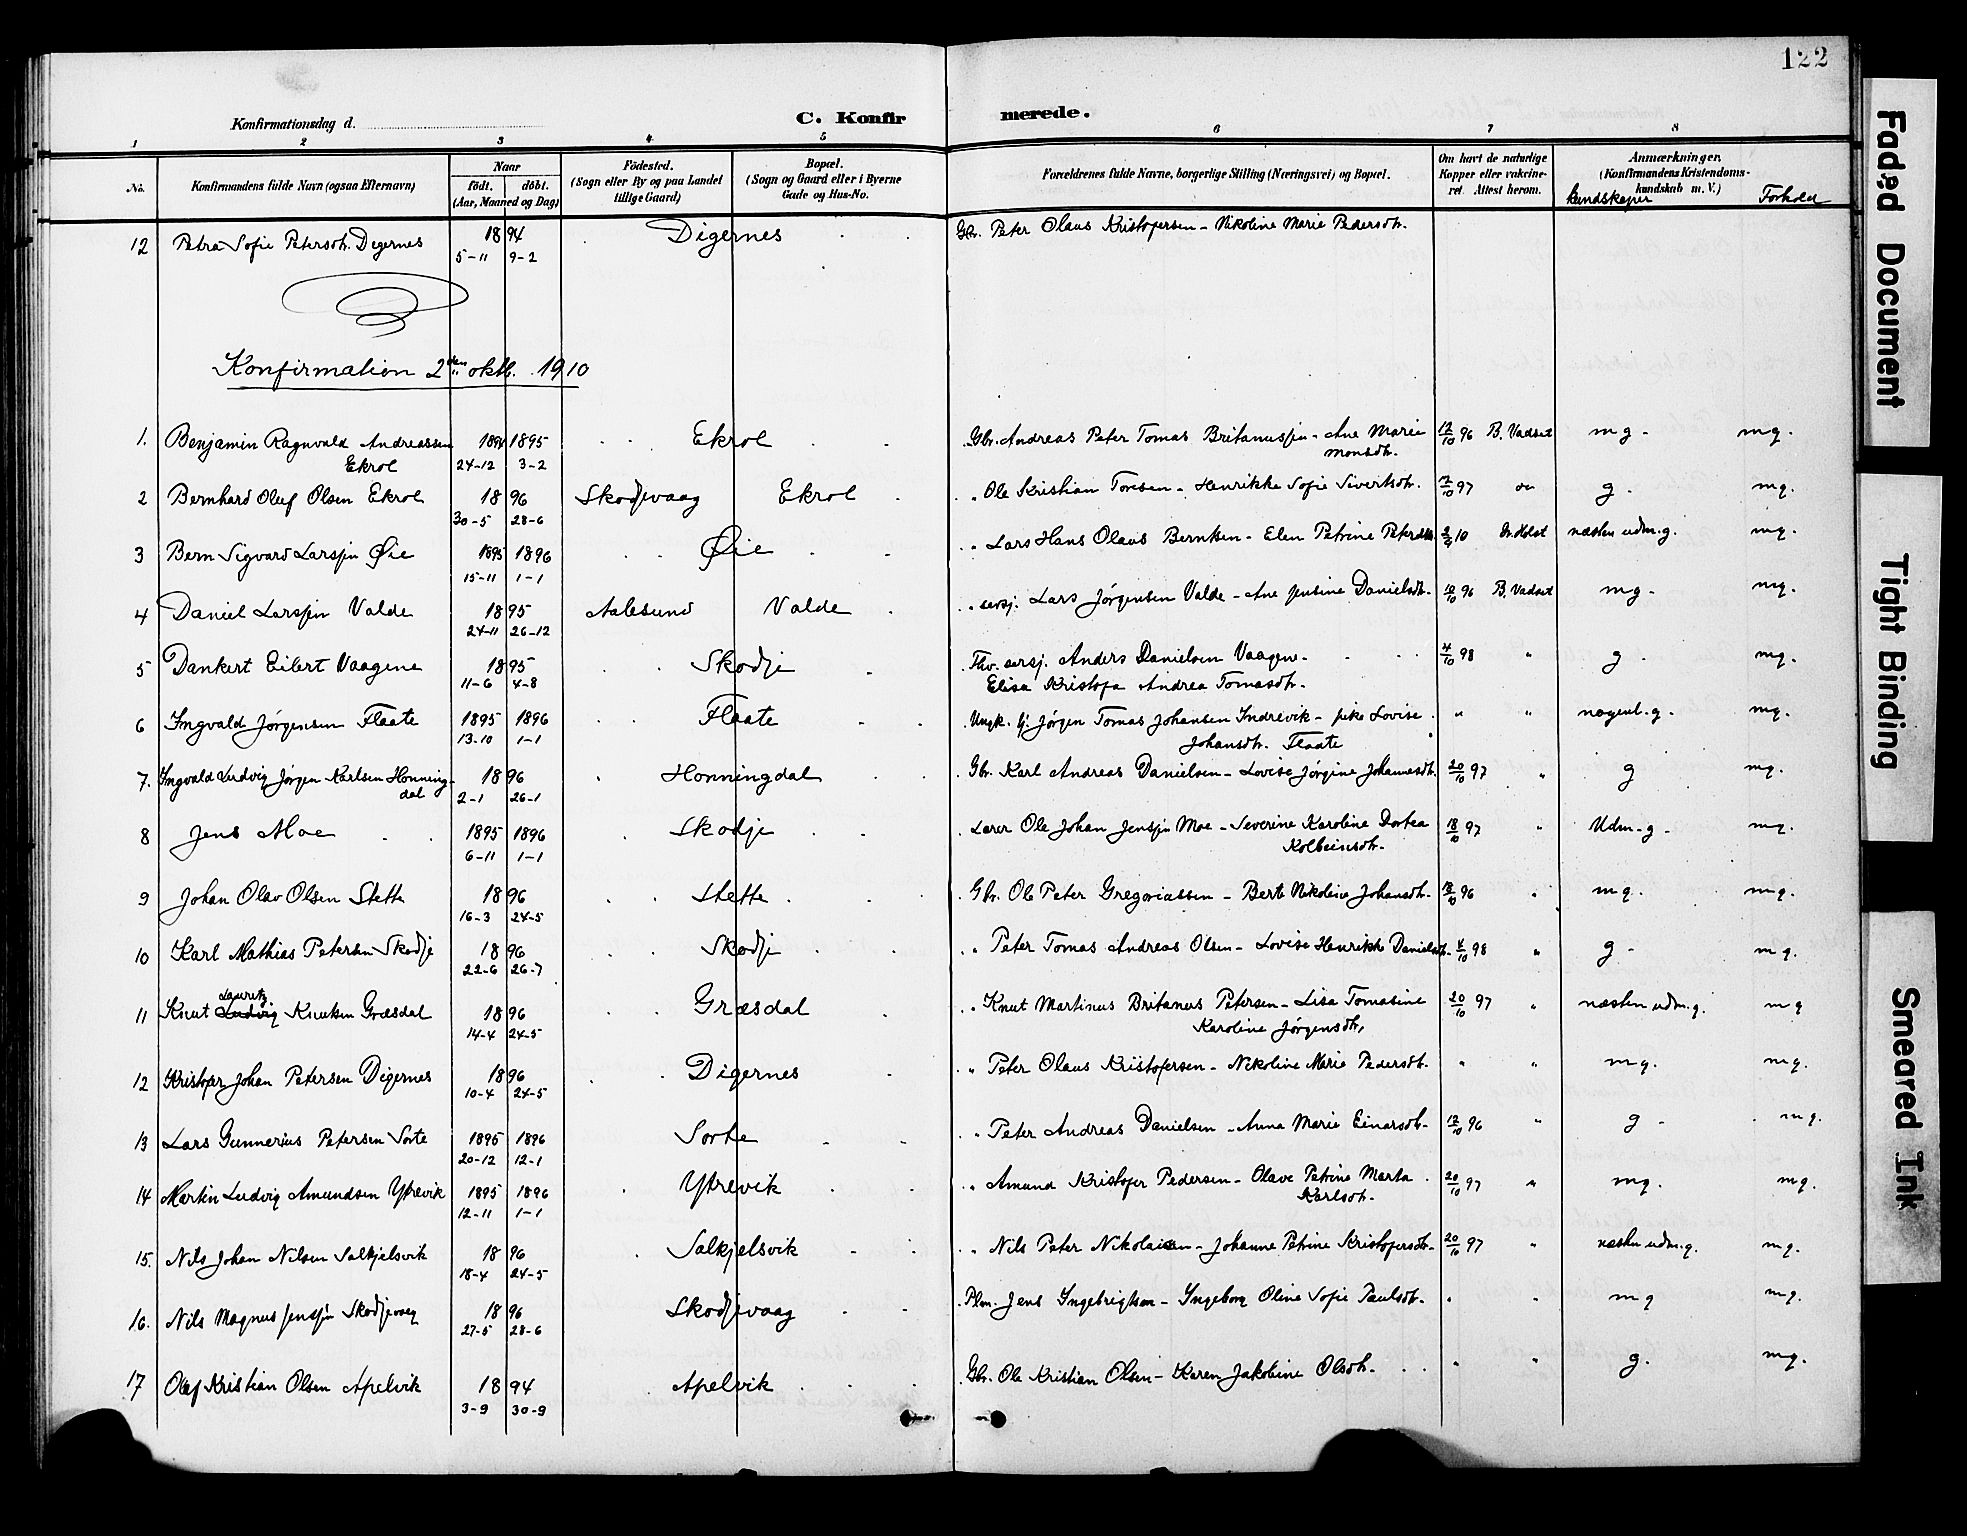 122
Konfirmationsdag d.
C. Konfirmerede.
1 2 3 4 5 6 7 8
No.
Konfirmandens fulde Navn (ogsaa Efternavn)
Naar
født. døbt.
(Aar, Maaned og Dag)
Fødested.
(Sogn eller By og paa Landet
tillige Gaard)
Bopæl.
(Sogn og Gaard eller i Byerne
Gade og Hus-No.
Forældrenes fulde Navne, borgerlige Stilling (Næringsvei) og Bopæl.
Om havt de naturlige
Kopper eller vakcine-
ret. Attest herom.
Anmærkninger.
(Konfirmandens Kristendoms-
kundskab m. V.)
Kundskaper Forhold
12 Petra Sofie Petersdtr. Digernes 1894 Digernes Gbr. Peter Olaus Kristofersen - Nikoline Marie Pedersdtr.
5-11 9-2
Konfirmation 2den oktb. 1910
1. Benjamin Ragnvald Andreassen 1894 1895 Ekrol Gbr. Andreas Peter Tomas Britanusen - Ane Marie 12/10 96 B. Vadset mg. mg.
Ekrol 24-12 3-2 Monsdtr.
2 Bernhard Oluf Olsen Ekrol 1896 Skodjevaag Ekrol " Ole Kristian Toresen - Henrikke Sofie Sivertsdtr. 97 g. mg.
30-5 28-6
3 Bern Sigvard Larssen Øie 1895 1896 Øie " Lars Hans Olaus Berntsen - Elen Petrine Petersdtr. 10 Holst næsten udm.g. mg.
15-11 1-1
4 Daniel Larssen Valde 1895 Aalesund Valde " sersj. Lars Jørgensen Valde - Ane Jensine Danielsdtr. 96 B. Vadset mg. mg.
24-11 26-12
5 Dankert Eilert Vaagene 1895 Skodje Fhv. sersj. Anders Danielsen Vaagene - 4/10 98 " g. mg.
11-6 4-8 Elisa Kristofa Andrea Tomasdtr.
6 Ingvald Jørgensen Flaate 1895 1896 Flaate Ungk. Jørgen Tomas Johansen Indrevik - pike Lovise " " nogenl. g. mg.
13-10 1-1 Johansdtr. Flaate
7. Ingvald Ludvig Jørgen Karlsen Honning- 1896 Honningdal Gbr. Karl Andreas Danielsen - Lovise Jørgine Johannesdtr. 20/10 97 " g mg.
dal 2-1 26-1
8 Jens Moe 1895 1896 Skodje Lærer Ole Johan Jenssen Moe - Severine Karoline Dortea 18/10 97 " Udm-g. mg.
6-11 1-1 Kolbeinsdtr.
9 Johan Olav Olsen Stette 1896 Stette Gbr. Ole Peter Gregoriassen - Berte Nikoline Johansdtr. 96 " mg. mg.
16-3 24-5
10 Karl Mathias Petersen Skodje 1896 Skodje " Peter Tomas Andreas Olsen - Lovise Henrikke Danielsdtr. 4/10 98 " g - mg.
22-6 26-7
Lauritz
11 Knut Ludvig Knutsen Græsdal 1896 Græsdal " Knut Martinus Britanus Petersen - Lisa Tomasine 20/10 97 " næsten udm.g. mg
14-4 24-5 Karoline Jørgensdtr.
12 Kristofer Johan Petersen Digernes 1896 Digernes " Peter Olaus Kristofersen - Nikoline Marie Pedersdtr. " " mg. mg.
10-4 24-5
13 Lars Gunnerius Petersen Sorte 1895 1896 Sorte " Peter Andreas Danielsen - Anna Marie Einarsdtr. 12/10 96 " g - mg.
20-12 12-1
14 Martin Ludvig Amundsen Ytrevik 1895 1896 Ytrevik " Amund Kristofer Pedersen - Olave Petrine Marta 20/10 97 " mg. mg.
12-11 1-1 Karlsdtr.
15. Nils Johan Nilsen Salkjelsvik 1896 Salkjelsvik " Nils Peter Nikolaisen - Johanne Petrine Kristofersdtr. 20/10 97 " næsten udm.g. mg.
18-4 24-5
16. Nils Magnus Jenssen Skodjevaag 1896 Skodjevaag Plm. Jens Ingebrigtsen - Ingeborg Oline Sofie Paulsdtr. " " mg mg.
27-5 28-6
17 Olaf Kristian Olsen Apelvik 1894 Apelvik Gbr. Ole Kristian Olsen - Karen Jakobine Olsdtr. " " g. mg.
3-9 30-9
Faded Document
Tight Binding
Smeared Ink